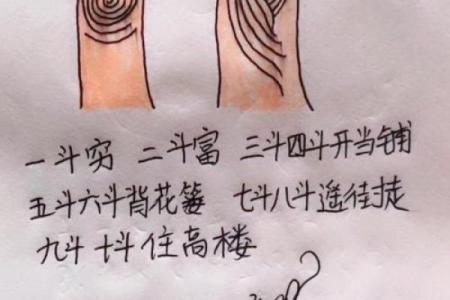 一斗穷 二斗富 三斗四斗开当铺
五斗六斗背花篓 七斗八斗遥街走
九斗十斗住高楼